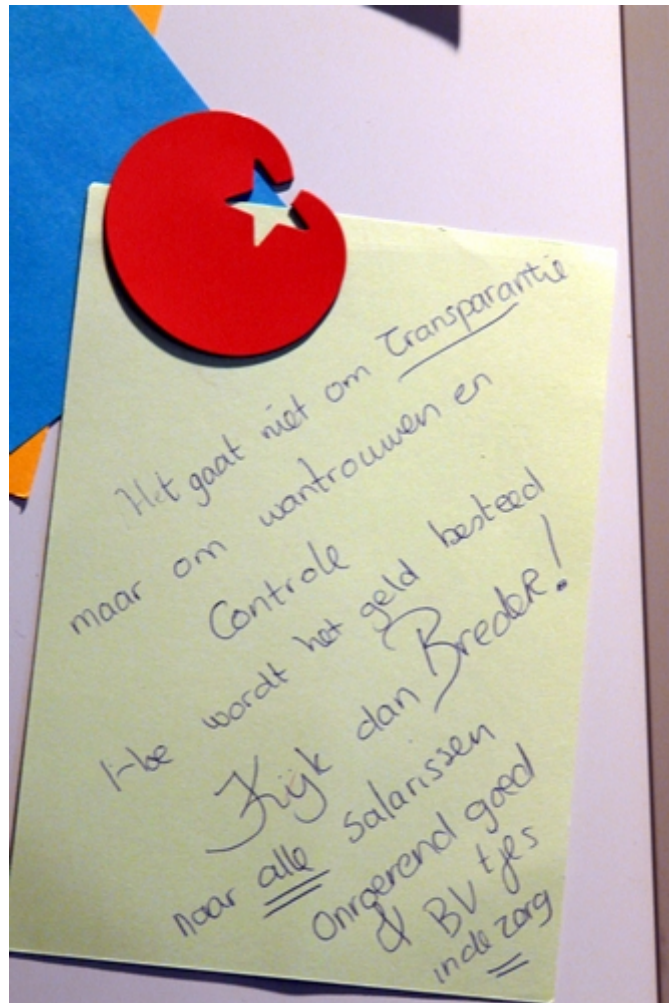 Het gaat niet om Transparantie
maar om wantrouwen en
Controle
Hoe wordt het geld besteed
Kijk dan Breder!
naar alle salarissen
Onroerend goed
& BV tjes
in de zorg